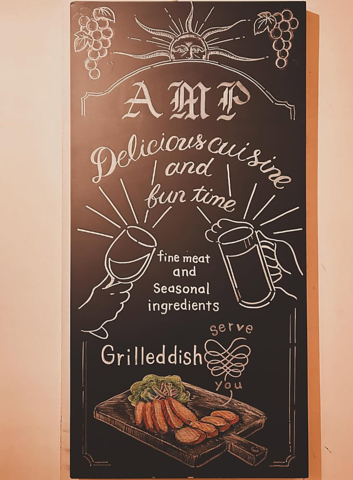 AMP
Delicious cuisine
and
fun time
fine meat
and
Seasonal
ingredients
serve
Grilleddish
you